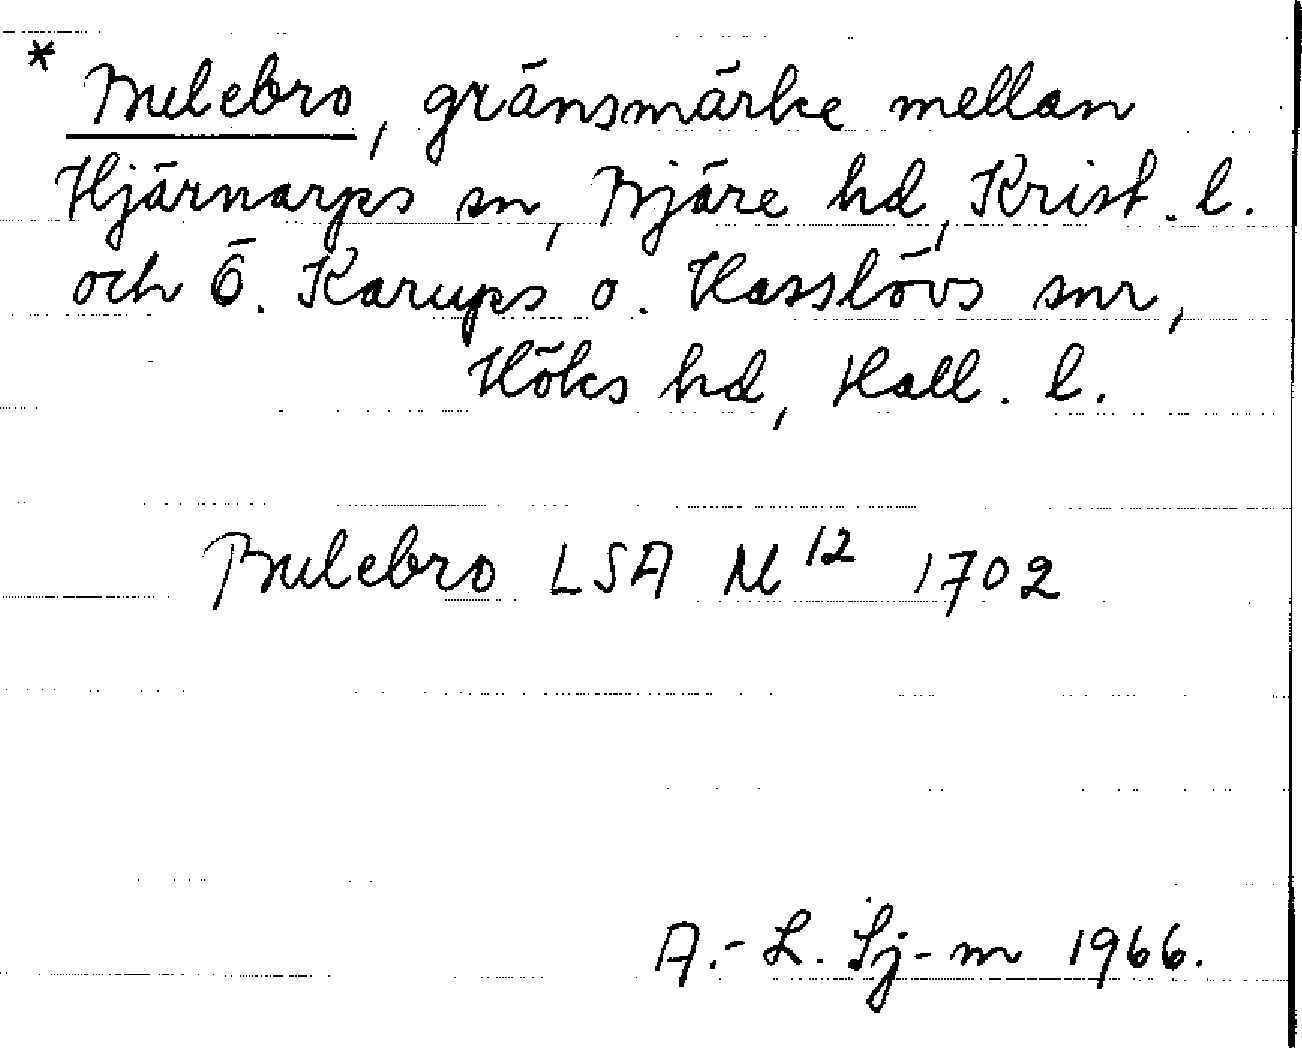 * Bulebro, gränsmärke mellan
Hjärnarps sn, Bjäre hd, Krist. l.
och Ö. Karups o. Hasslövs snr,
Höks hd, Hall. l.
Bulebro LSA M 12 1702
A.-L. Sj-m 1966.